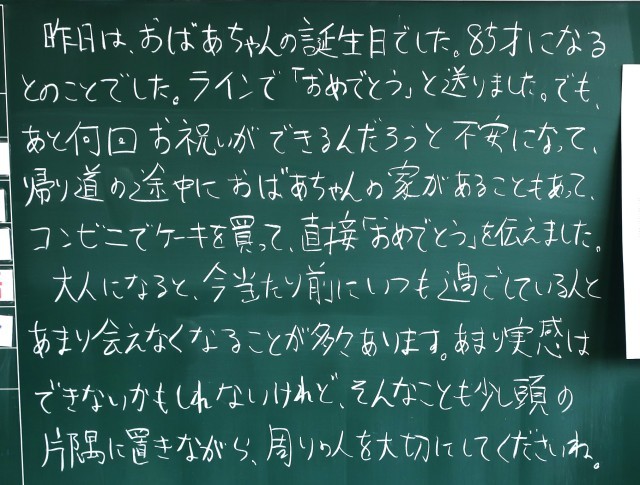 昨日は、おばあちゃんの誕生日でした。85才になる
とのことでした。ラインで「おめでとう」と送りました。でも、
あと何回お祝いができるんだろうと不安になって、
帰り道の途中におばあちゃんの家があることもあって、
コンビニでケーキを買って、直接「おめでとう」を伝えました。
大人になると、今当たり前にいつも過ごしている人と
あまり会えなくなることが多々あります。あまり実感は
できないかもしれないけれど、そんなことも少し頭の
片隅に置きながら、周りの人を大切にしてくださいね。